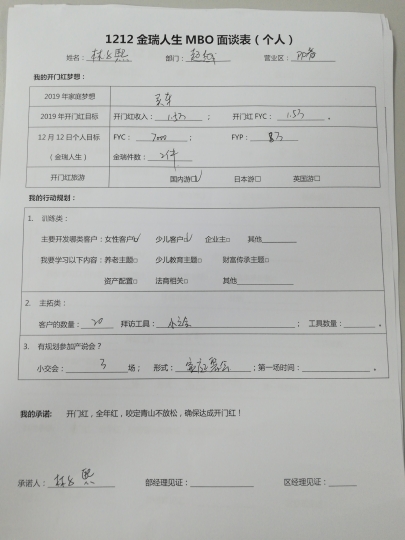 1212金瑞人生MBO面谈表（个人）
姓名： 部门： 营业区：
我的开门红梦想：
2019年家庭梦想 买车
2019年开门红目标 开门红收入：1.5万； 开门红FYC：1.5万。
12月12日个人目标 FYC：7000； FYP：8万
（金瑞人生） 金瑞件数：2件
开门红旅游 国内游□√ 日本游□ 英国游□
我的行动规划：
1. 训练类：
主要开发哪类客户：女性客户□√ 少儿客户□√ 企业主□ 其他
我要学习以下内容：养老主题□ 少儿教育主题□ 财富传承主题□
资产配置□ 法商相关□ 其他
2. 主拓类：
客户的数量：20 拜访工具：； 工具数量：。
3. 有规划参加产说会？
小交会：3场； 形式：；第一场时间：。
我的承诺： 开门红，全年红，咬定青山不放松，确保达成开门红！
承诺人： 部经理见证： 区经理见证：